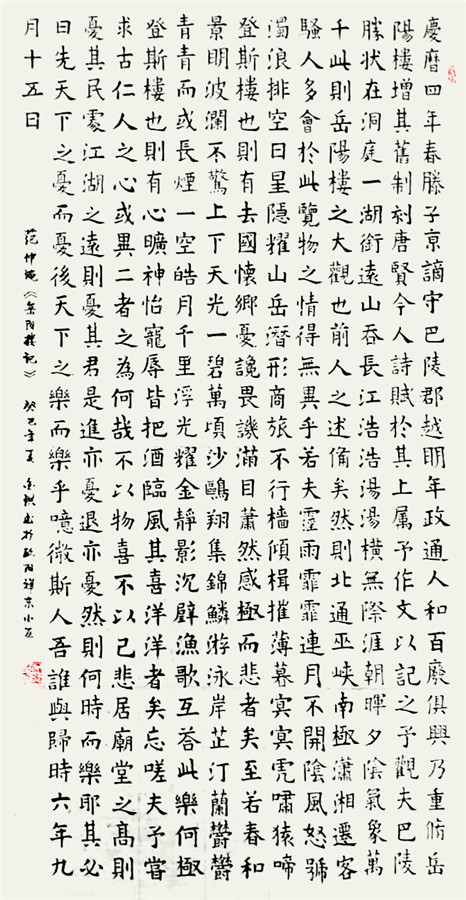 慶曆四年春滕子京謫守巴陵郡越明年政通人和百廢俱興乃重脩岳
陽樓增其舊制刻唐賢今人詩賦於其上属予作文以記之予觀夫巴陵
勝状在洞庭一湖銜遠山吞長江浩浩湯湯橫無際涯朝暉夕陰氣象萬
千此則岳陽樓之大觀也前人之述備矣然則北通巫峽南極瀟湘遷客
騷人多會於此覽物之情得無異乎若夫霪雨霏霏連月不開陰風怒號
濁浪排空日星隱耀山岳潛形商旅不行檣傾楫摧薄暮冥冥虎嘯猿啼
登斯樓也則有去國懷鄉憂讒畏譏滿目蕭然感極而悲者矣至若春和
景明波瀾不驚上下天光一碧萬頃沙鷗翔集錦鱗游泳岸芷汀蘭鬱鬱
青青而或長煙一空皓月千里浮光耀金靜影沉璧漁歌互答此樂何極
登斯樓也則有心曠神怡寵辱皆把酒臨風其喜洋洋者矣忘嗟夫予嘗
求古仁人之心或異二者之為何哉不以物喜不以己悲居廟堂之高則
憂其民處江湖之遠則憂其君是進亦憂退亦憂然則何時而樂耶其必
曰先天下之憂而憂後天下之樂而樂乎噫微斯人吾誰與歸時六年九
月十五日
范仲淹《岳阳樓記》 癸巳年夏